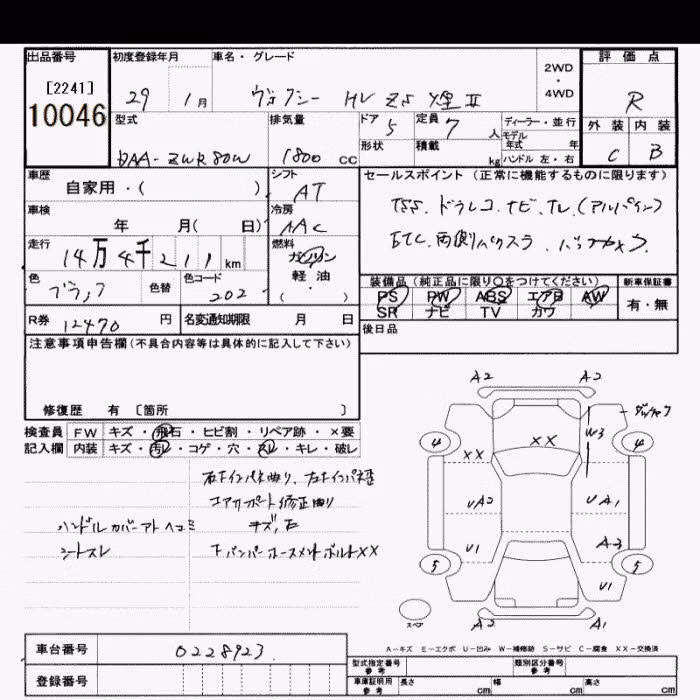 出品番号 初度登録年月 車名・グレード 2WD・4WD 評価点
[2241]
10046
29 1月 ヴォクシー HV ZS 煌 II R
型式 排気量 ドア 5 定員 7 人 ディーラー・並行
モデル年式 年
外装 内装
DAA-ZWR80W 1800 CC 形状 積載 kg ハンドル 左・右 C B
車歴 シフト セールスポイント (正常に機能するものに限ります)
自家用・( ) AT
TSS、ドラレコ、ナビ、TV、(アルパイン)
車検 冷房
年 月( 日) AAC
ETC、両側パワスラ、バックカメラ
走行 燃料
14万4千211 km ガソリン
軽・油
・( )
色 色替 色コード
ブラック 202
装備品 (純正品に限り○をつけてください) 新車保証書
PS PW ABS エアB AW 有・無
SR ナビ TV カワ
R券 12470 円 名変通知期限 月 日
後日品
注意事項申告欄 (不具合内容等は具体的に記入して下さい)
修復歴 有 〔箇所 〕
検査員 FW キズ・飛石・ヒビ割・リペア跡・×要
記入欄 内装 キズ・汚レ・コゲ・穴・スレ・キレ・破レ
エアサポート修正曲り
ハンドルカバーアト ヘコミ
シートスレ
A2 A2
4 XX W3 4
XX
UA2 UA1
U1 A3
5 5
U1
スペア A2 A1
A-キズ E-エクボ U-凹み W-補修跡 S-サビ C-腐食 XX-交換済
車台番号 0228923
型式指定番号 参考 類別区分番号 参考
登録番号
車庫証明用 参考 長さ cm 幅 cm 高さ cm